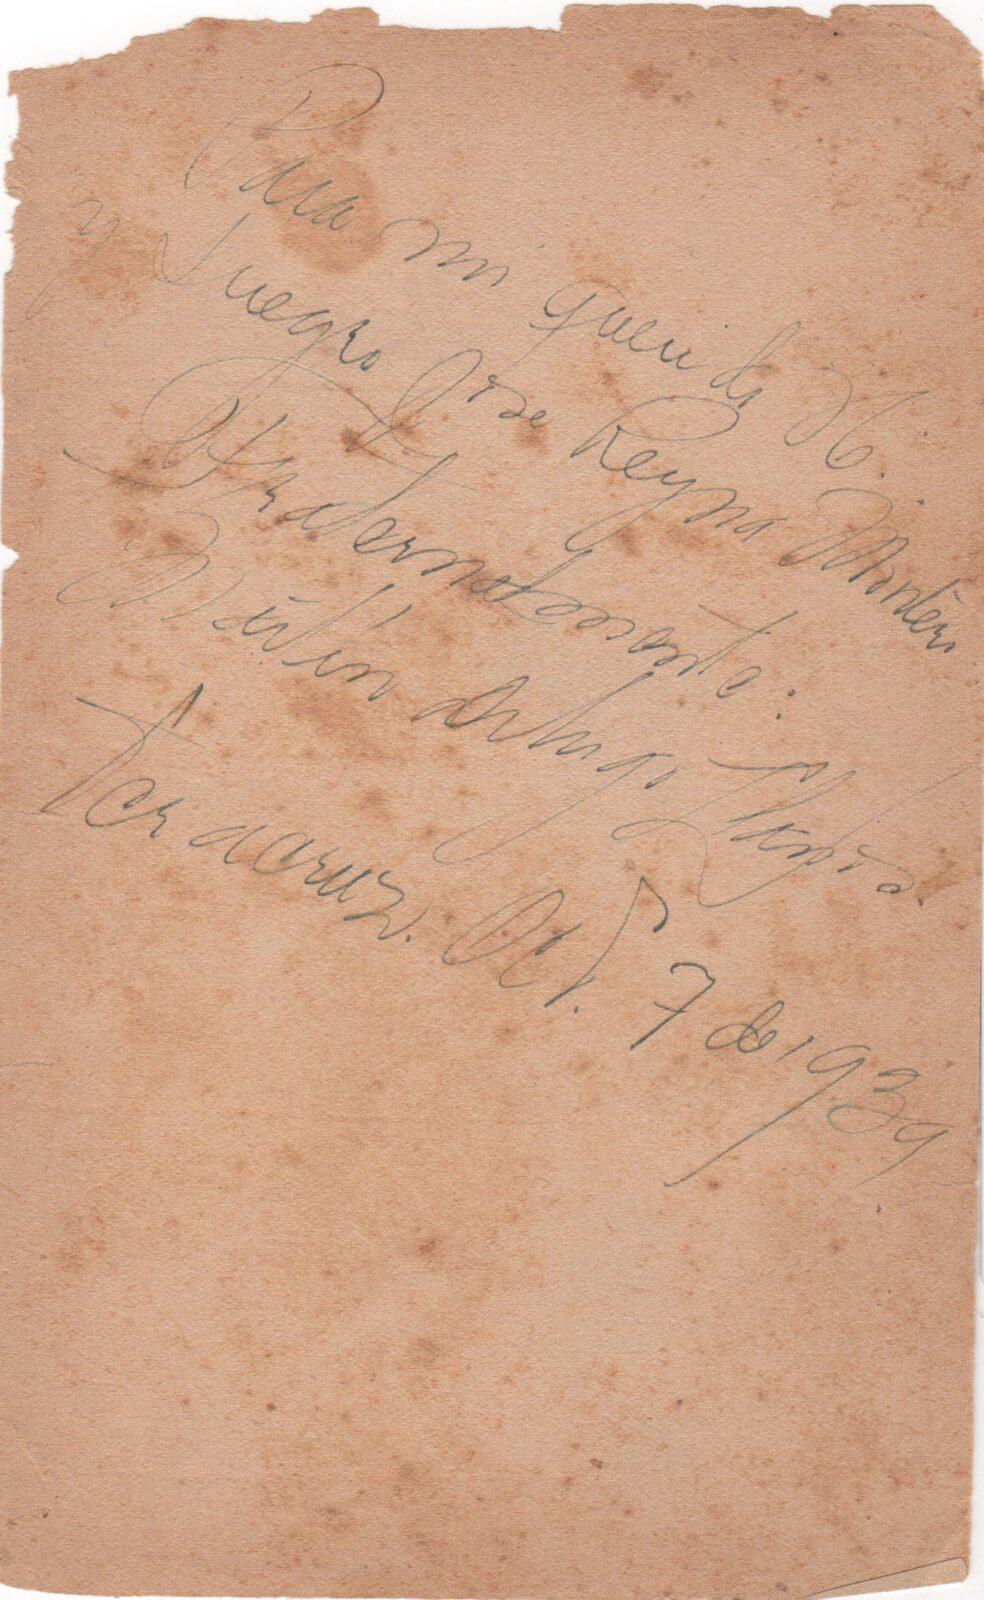 Para mi querido H.·.
y Suegro Jose Reyna Montero
Fraternalmente:
Martin
Veracruz. Oct. 7 de 1939.